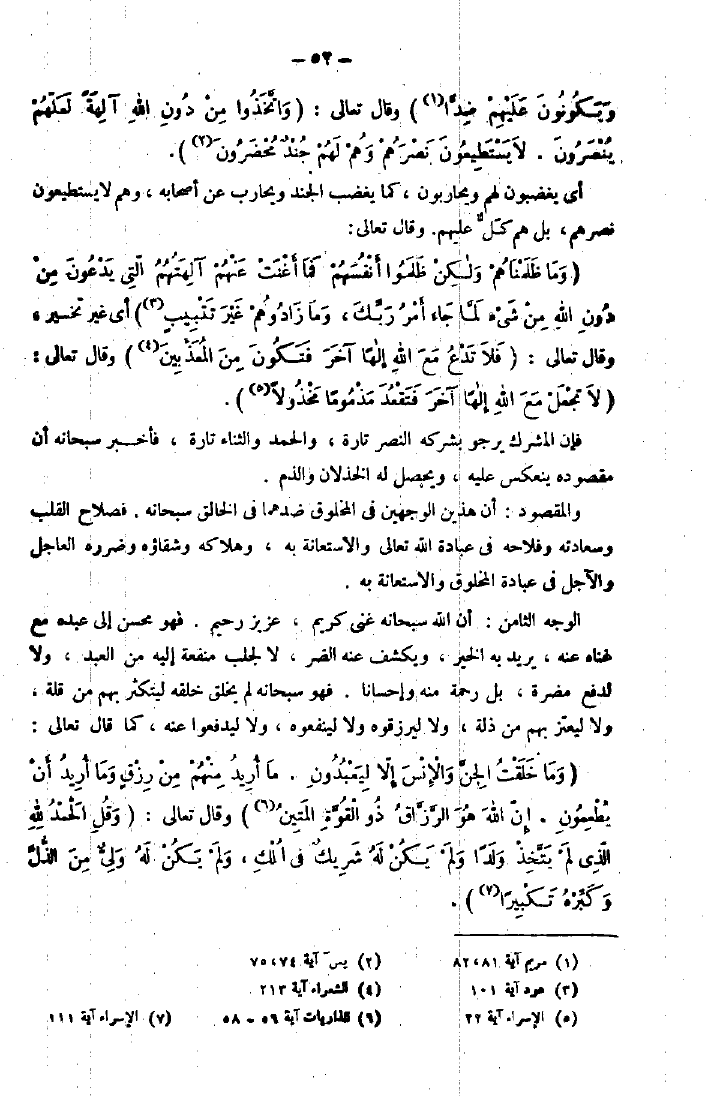 — ٥٢ —
وَيَكُونُونَ عَلَيْهِمْ ضِدًّا(١) ) وقال تعالى : ( وَاتَّخَذُوا مِنْ دُونِ اللهِ آلِهَةً لَعَلَّهُمْ
يُنْصَرُونَ . لاَيَسْتَطِيعُونَ نَصْرَهُمْ وَهُمْ لَهُمْ جُنْدٌ مُحْضَرُونَ(٢) ) .
أى يغضبون لهم ويحاربون ، كما يغضب الجند ويحارب عن أصحابه ، وهم لايستطيعون
نصرهم ، بل هم كَلٌّ عليهم. وقال تعالى:
( وَمَا ظَلَمْنَاهُمْ وَلٰكِنْ ظَلَمُوا أَنْفُسَهُمْ فَمَا أَغْنَتْ عَنْهُمْ آلِهَتُهُمُ الَّتِي يَدْعُونَ مِنْ
دُونِ اللهِ مِنْ شَىْءٍ لَمَّا جَاءَ أَمْرُ رَبِّكَ ، وَمَا زَادُوهُمْ غَيْرَ تَتْبِيبٍ(٣) ) أى غير تخسير ،
وقال تعالى : ( فَلاَ تَدْعُ مَعَ اللهِ إِلٰهًا آخَرَ فَتَكُونَ مِنَ الْمُعَذَّبِينَ(٤) ) وقال تعالى :
( لاَ تَجْعَلْ مَعَ اللهِ إِلٰهًا آخَرَ فَتَقْعُدَ مَذْمُومًا مَخْذُولاً(٥) ) .
فإن المشرك يرجو بشركه النصر تارة ، والحمد والثناء تارة ، فأخبر سبحانه أن
مقصوده ينعكس عليه ، ويحصل له الخذلان والذم .
والمقصود : أن هذين الوجهين فى المخلوق ضدهما فى الخالق سبحانه . فصلاح القلب
وسعادته وفلاحه فى عبادة الله تعالى والاستعانة به ، وهلاكه وشقاؤه وضرره العاجل
والآجل فى عبادة المخلوق والاستعانة به .
الوجه الثامن : أن الله سبحانه غنى كريم ، عزيز رحيم . فهو محسن إلى عبده مع
غناه عنه ، يريد به الخير ، ويكشف عنه الضر ، لا لجلب منفعة إليه من العبد ، ولا
لدفع مضرة ، بل رحمة منه وإحسانا . فهو سبحانه لم يخلق خلقه ليتكثر بهم من قلة ،
ولا ليعتز بهم من ذلة ، ولا ليرزقوه ولا لينفعوه ، ولا ليدفعوا عنه ، كما قال تعالى :
( وَمَا خَلَقْتُ الْجِنَّ وَالْإِنْسَ إِلَّا لِيَعْبُدُونِ . مَا أُرِيدُ مِنْهُمْ مِنْ رِزْقٍ وَمَا أُرِيدُ أَنْ
يُطْعِمُونِ . إِنَّ اللهَ هُوَ الرَّزَّاقُ ذُو الْقُوَّةِ الْمَتِينُ(٦) ) وقال تعالى : ( وَقُلِ الْحَمْدُ لِلهِ
الَّذِى لَمْ يَتَّخِذْ وَلَدًا وَلَمْ يَكُنْ لَهُ شَرِيكٌ فِى الْمُلْكِ ، وَلَمْ يَكُنْ لَهُ وَلِىٌّ مِنَ الذُّلِّ
وَكَبِّرْهُ تَكْبِيرًا(٧) ) .
(١) مريم آية ٨١ ، ٨٢ (٢) يسَ آية ٧٤ ، ٧٥
(٣) هود آية ١٠١ (٤) الشعراء آية ٢١٣
(٥) الإسراء آية ٢٢ (٦) الذاريات آية ٥٦ - ٥٨ (٧) الإسراء آية ١١١